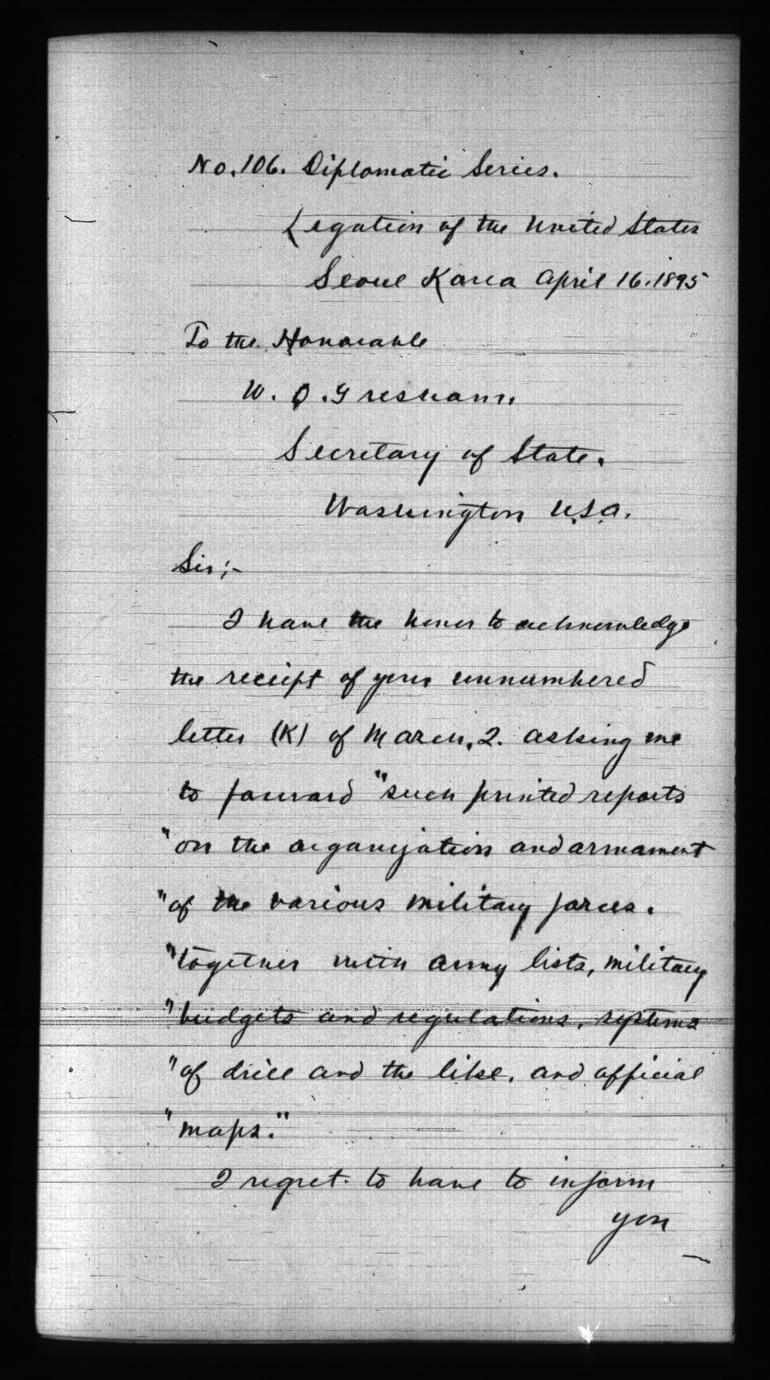 No. 106. Diplomatic Series.
Legation of the United States
Seoul Korea April 16. 1895
To the Honorable
W. Q. Gresham.
Secretary of State.
Washington U.S.A.
Sir;-
I have the honor to acknowledge
the receipt of your unnumbered
letter (K) of March, 2. asking me
to forward "such printed reports
"on the organization and armament
"of the various military forces.
"together with army lists, military
"budgets and regulations, systems
"of drill and the like, and official
"maps."
I regret to have to inform
you